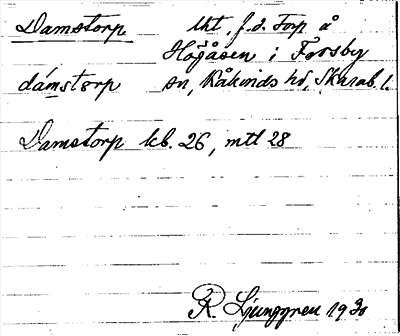 Damstorp lht, f.d. Torp å
Högåsen i Forsby
dámstorp sn, Kåkinds hd, Skarab. l.
Damstorp kb. 26, mtl 28
R. Ljunggren 1930